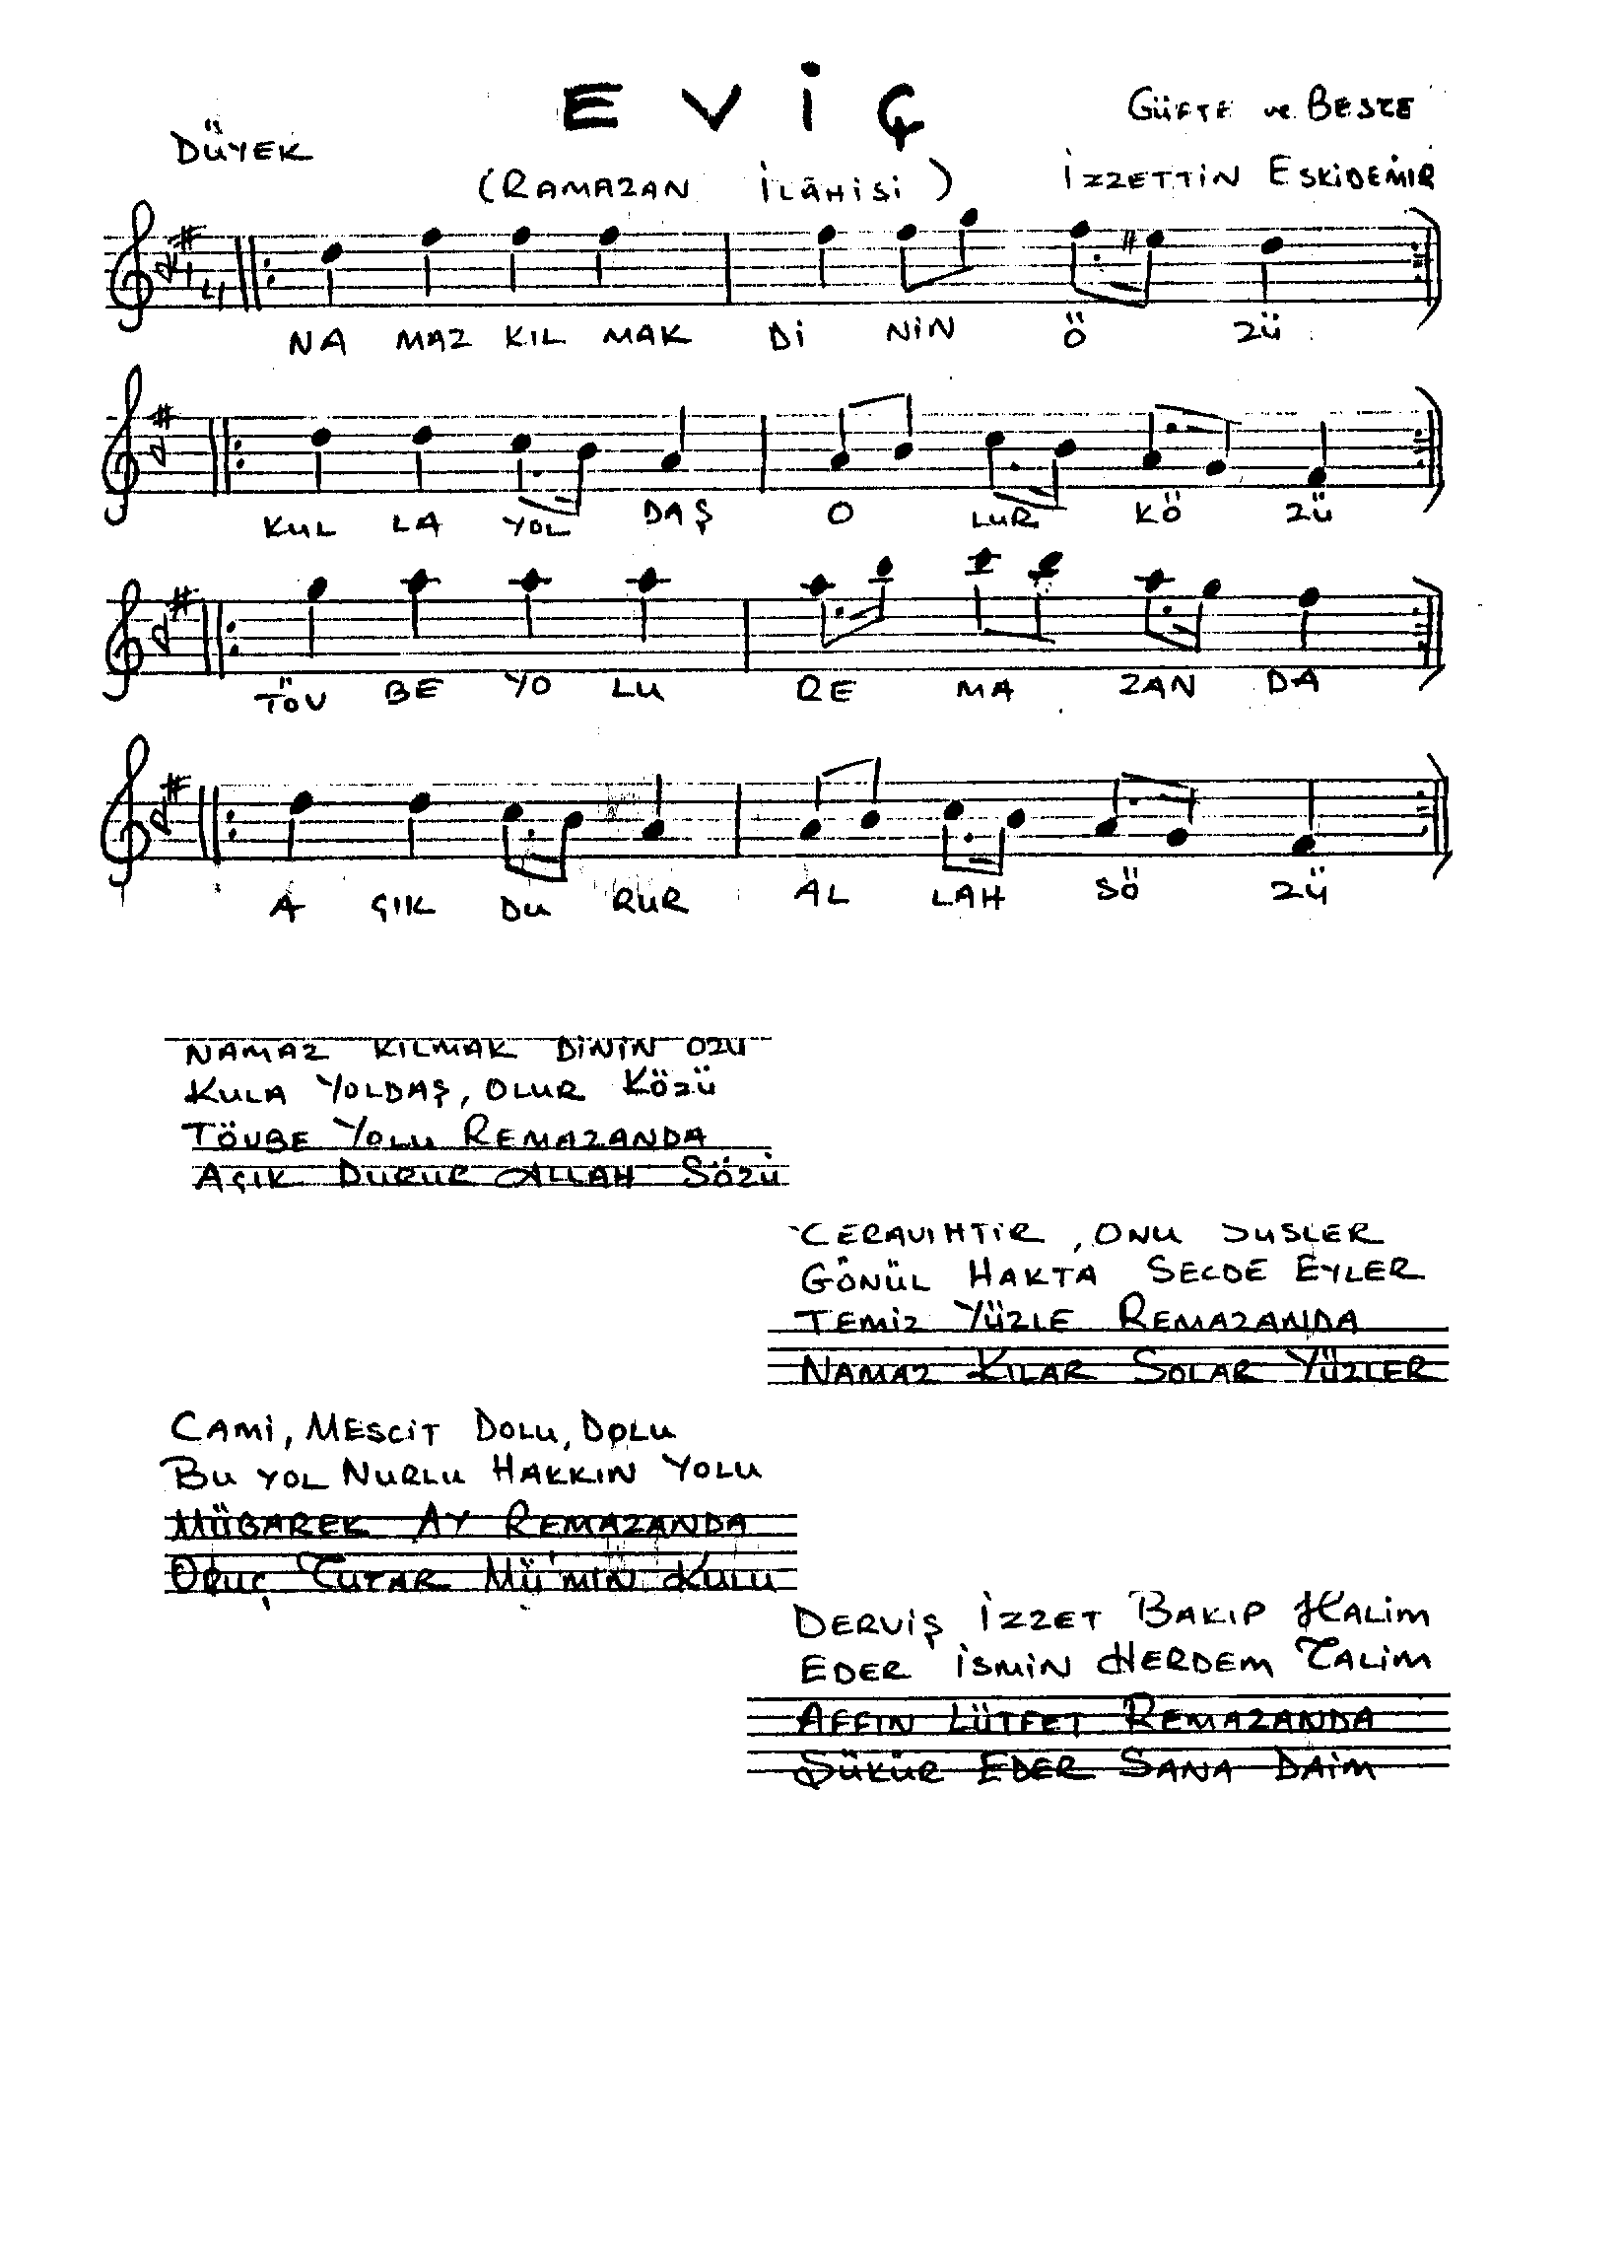 EVİÇ
DÜYEK
GÜFTE ve BESTE
(RAMAZAN İLÂHİSİ)
İZZETTİN ESKİDEMİR
NA MAZ KIL MAK Dİ NİN Ö ZÜ
KUL LA YOL DAŞ O LUR KÖ ZÜ
TÖV BE YO LU RE MA ZAN DA
A ÇIK DU RUR AL LAH SÖ ZÜ
NAMAZ KILMAK DİNİN ÖZÜ
KULA YOLDAŞ, OLUR KÖZÜ
TÖVBE YOLU REMAZANDA
AÇIK DURUR ALLAH SÖZÜ
TERAVIHTİR, ONU SÜSLER
GÖNÜL HAKTA SECDE EYLER
TEMİZ YÜZLE REMAZANDA
NAMAZ KILAR SOLAR YÜZLER
CAMİ, MESCİT DOLU, DOLU
BU YOL NURLU HAKKIN YOLU
MÜBAREK AY REMAZANDA
ORUÇ TUTAR MÜ'MİN KULU
DERVİŞ İZZET BAKIP HALİM
EDER İSMİN HERDEM TALİM
AFFIN LÜTFET REMAZANDA
ŞÜKÜR EDER SANA DAİM